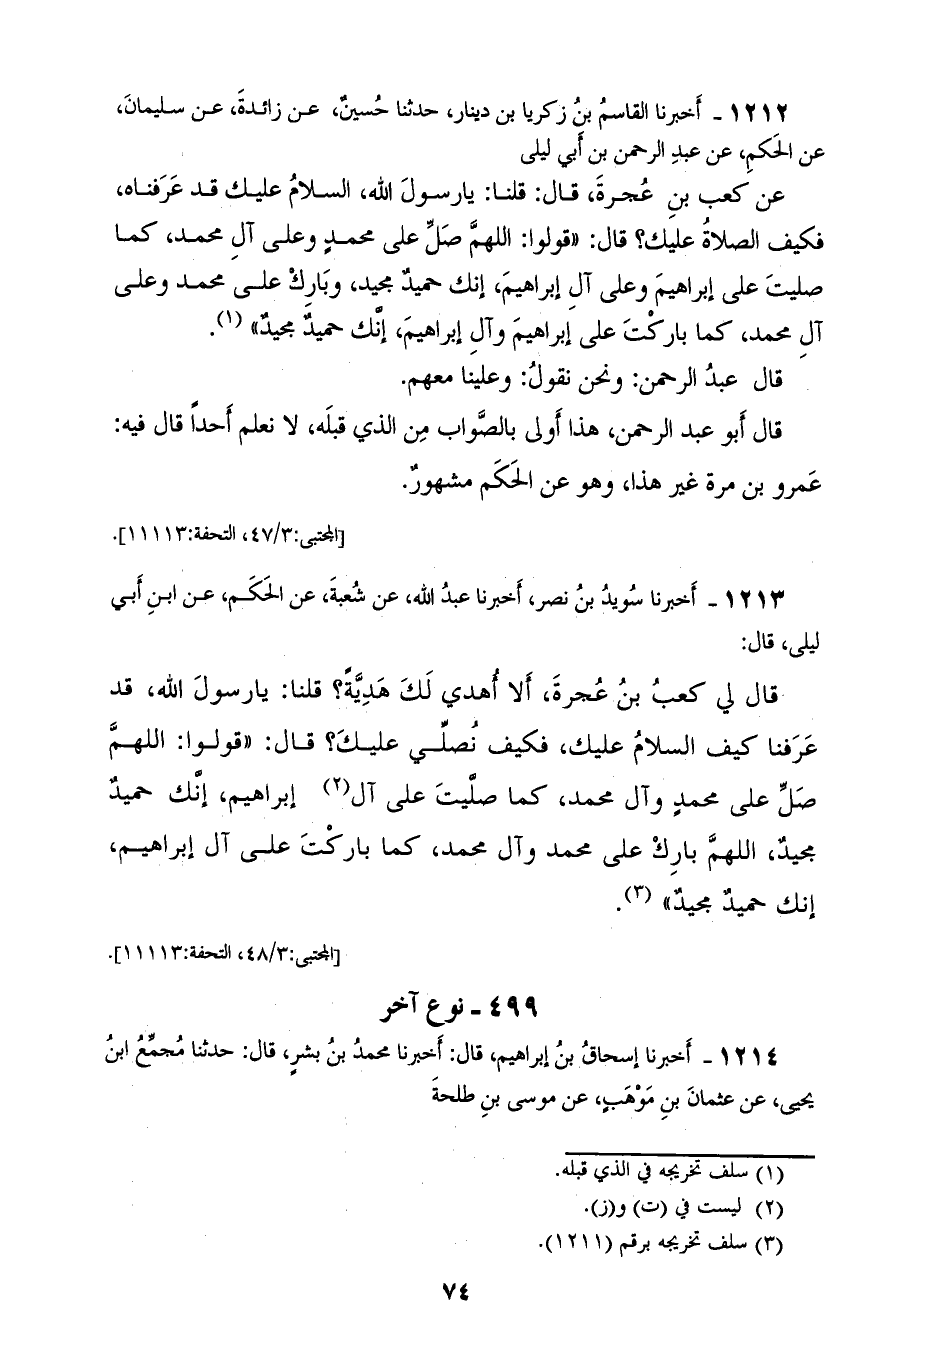 ١٢١٢ ـ أَخبرنا القاسمُ بنُ زكريا بن دينار، حدثنا حُسينٌ، عن زائدةَ، عن سليمانَ،
عن الحَكمِ، عن عبدِ الرحمن بن أَبي ليلى
عن كعب بنِ عُجرةَ، قال: قلنا: يارسولَ الله، السلامُ عليك قد عَرَفناه،
فكيف الصلاةُ عليك؟ قال: «قولوا: اللهمَّ صَلِّ على محمدٍ وعلى آلِ محمد، كما
صليتَ على إبراهيمَ وعلى آلِ إبراهيمَ، إنك حميدٌ مجيد، وبَارِكْ على محمد وعلى
آلِ محمد، كما باركْتَ على إبراهيمَ وآلِ إبراهيمَ، إنَّك حميدٌ مجيدٌ» (١).
قال عبدُ الرحمن: ونحن نقولُ: وعلينا معهم.
قال أَبو عبد الرحمن، هذا أَولى بالصَّواب مِن الذي قبلَه، لا نعلم أَحداً قال فيه:
عَمرو بن مرة غير هذا، وهو عن الحَكَم مشهورٌ.
[المجتبى:٤٧/٣، التحفة:١١١١٣].
١٢١٣ ـ أَخبرنا سُويدُ بنُ نصر، أَخبرنا عبدُ الله، عن شُعبةَ، عن الحَكَم، عن ابنِ أَبي
ليلى، قال:
قال لي كعبُ بنُ عُجرةَ، أَلا أُهدي لَكَ هَدِيَّةً؟ قلنا: يارسولَ الله، قد
عَرَفنا كيف السلامُ عليك، فكيف نُصلِّي عليكَ؟ قال: «قولوا: اللهمَّ
صَلِّ على محمدٍ وآل محمد، كما صلَّيتَ على آل(٢) إبراهيم، إنَّك حميدٌ
مجيدٌ، اللهمَّ بارِكْ على محمد وآل محمد، كما باركْتَ على آل إبراهيم،
إنك حميدٌ مجيدٌ» (٣).
[المجتبى:٤٨/٣، التحفة:١١١١٣].
٤٩٩ ـ نوع آخر
١٢١٤ ـ أَخبرنا إسحاقُ بنُ إبراهيم، قال: أَخبرنا محمدُ بنُ بشرٍ، قال: حدثنا مُجمِّعُ ابنُ
يحيى، عن عثمانَ بنِ مَوْهَبٍ، عن موسى بنِ طلحةَ
(١) سلف تخريجه في الذي قبله.
(٢) ليست في (ت) و(ز).
(٣) سلف تخريجه برقم (١٢١١).
٧٤